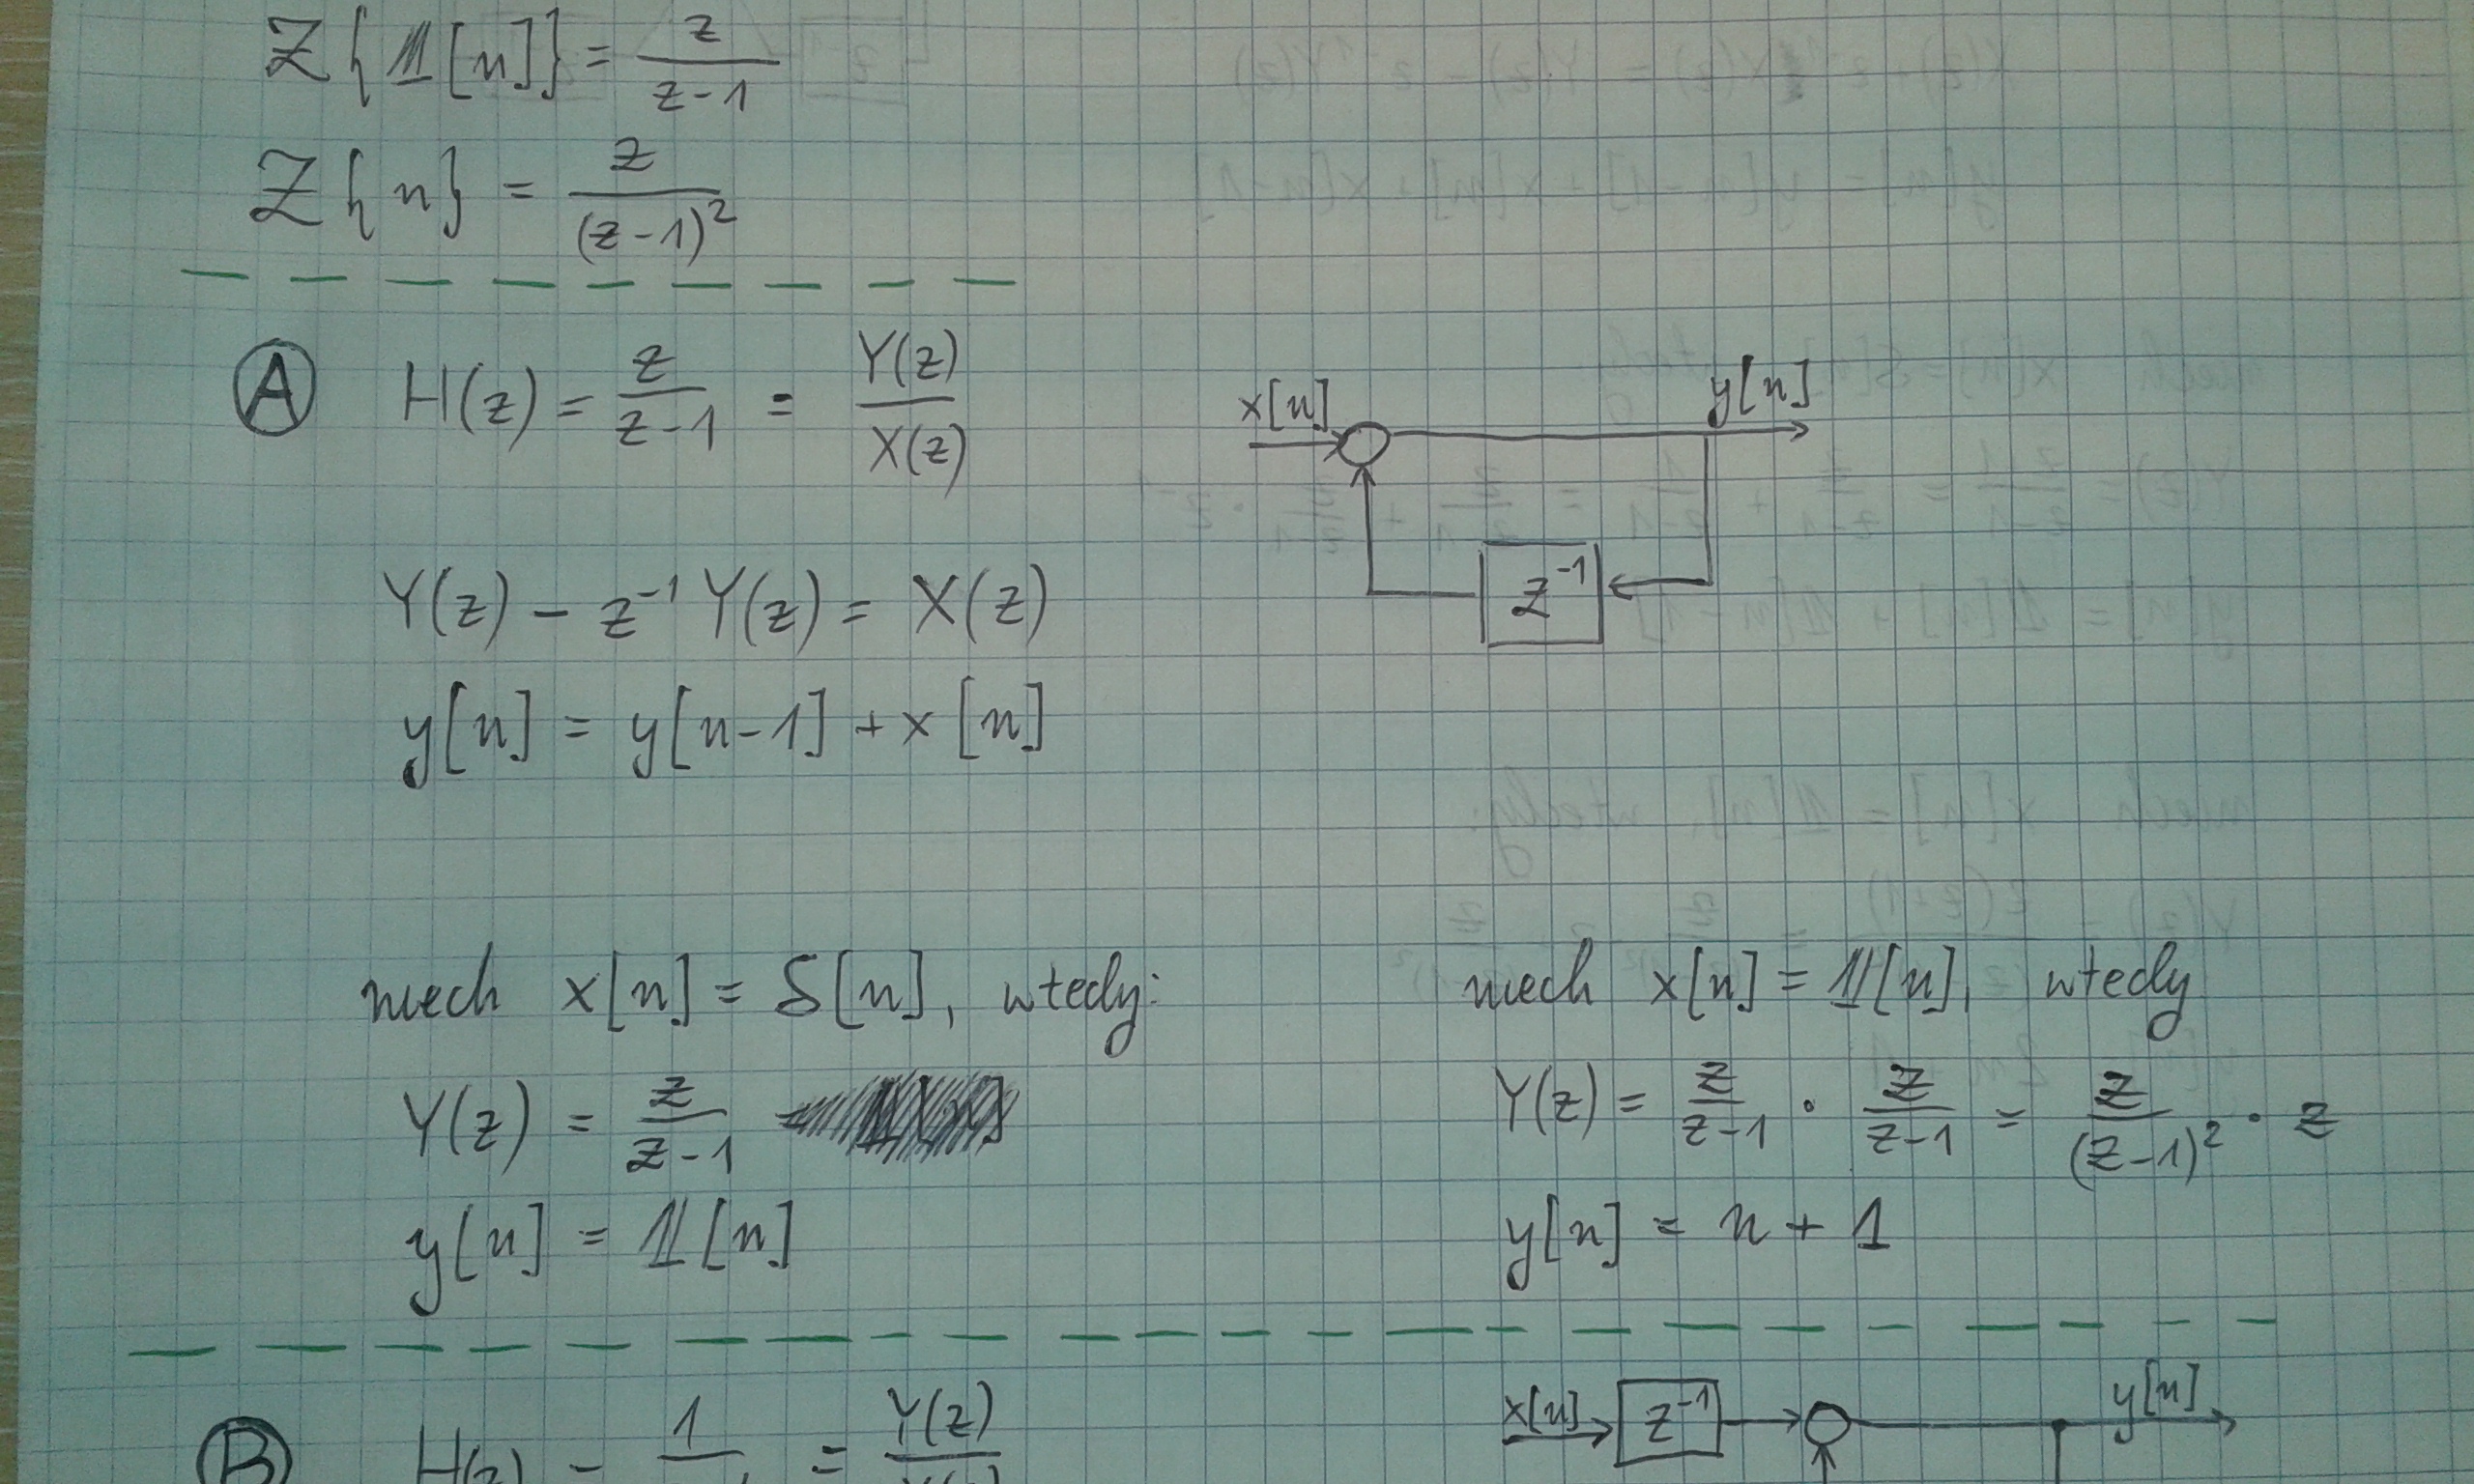 Z{𝟙[n]} = z/(z-1)
Z{n} = z/(z-1)²
Ⓐ H(z) = z/(z-1) = Y(z)/X(z)
x[n] y[n]
z⁻¹
Y(z) - z⁻¹ Y(z) = X(z)
y[n] = y[n-1] + x[n]
niech x[n] = δ[n], wtedy:
Y(z) = z/(z-1)
y[n] = 𝟙[n]
niech x[n] = 𝟙[n], wtedy
Y(z) = z/(z-1) · z/(z-1) = z/(z-1)² · z
y[n] = n + 1
Ⓑ H(z) = 1 = Y(z)
x[n] z⁻¹ y[n]